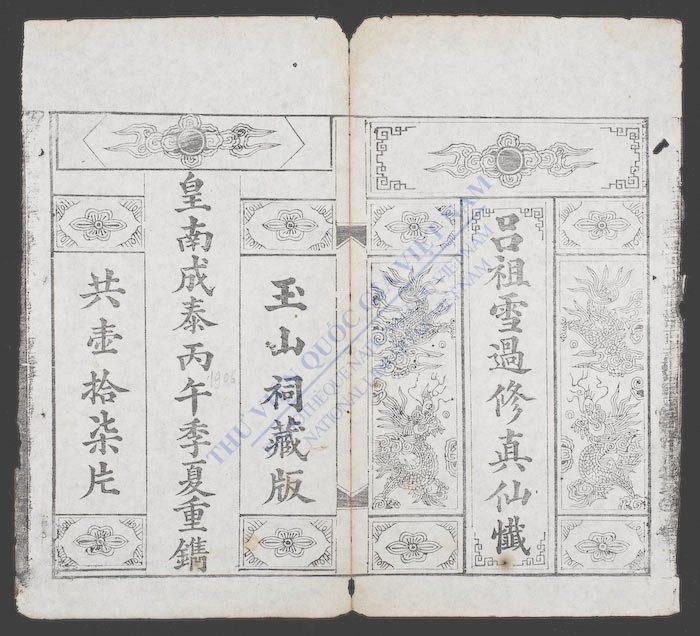 呂祖雪過修真仙懺
玉山祠藏版
皇南成泰丙午季夏重鐫
共壹拾柒片
1906
THƯ VIỆN QUỐC GIA VIỆT NAM
BIBLIOTHÈQUE NATIONALE DU VIETNAM
NATIONAL LIBRARY OF VIETNAM